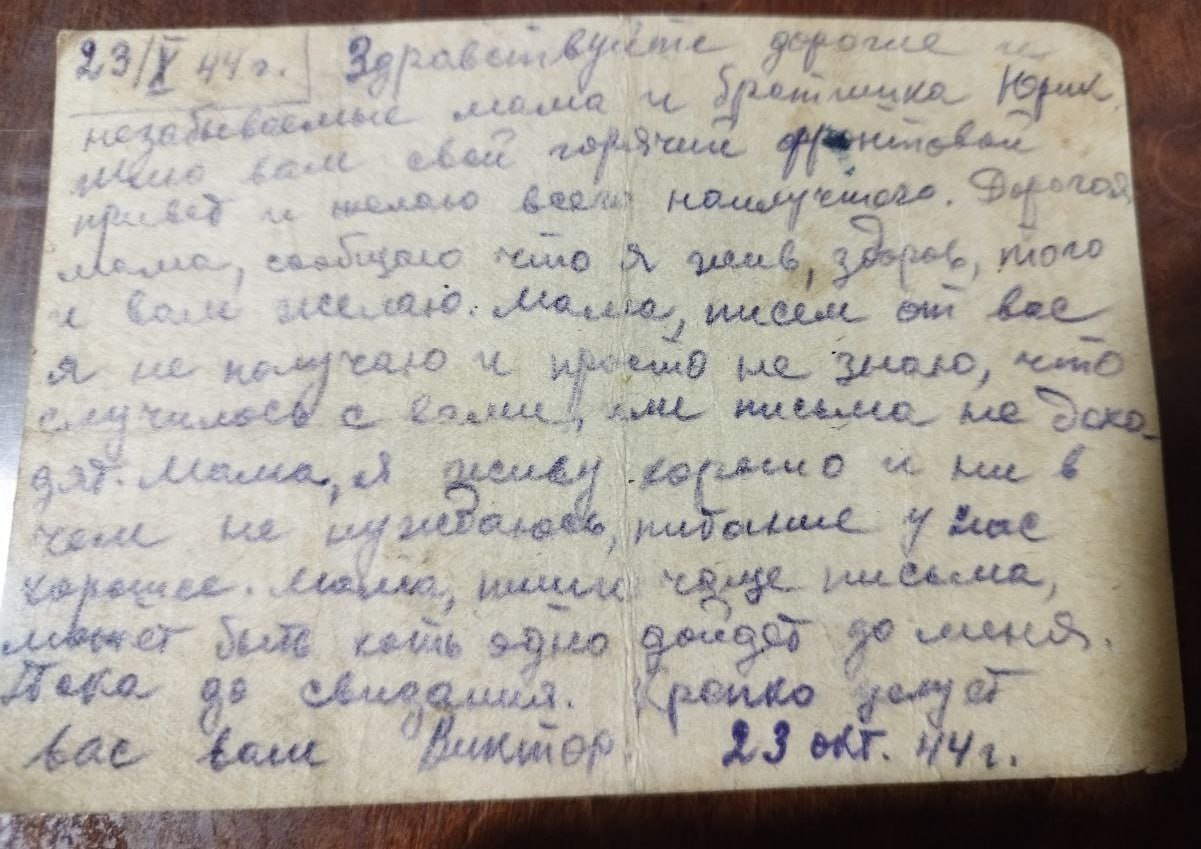 23/X 44 г. Здравствуйте дорогие и
незабываемые мама и братишка Юрик.
Шлю вам свой горячий фронтовой
привет и желаю всего наилучшего. Дорогая
мама, сообщаю что я жив, здоров, того
и вам желаю. Мама, писем от вас
я не получаю и просто не знаю, что
случилось с вами, или письма не дохо-
дят. Мама, я живу хорошо и ни в
чем не нуждаюсь, питание у нас
хорошее. Мама, пиши чаще письма,
может быть хоть одно дойдет до меня.
Пока до свидания. Крепко целует
вас ваш Виктор. 23 окт. 44 г.